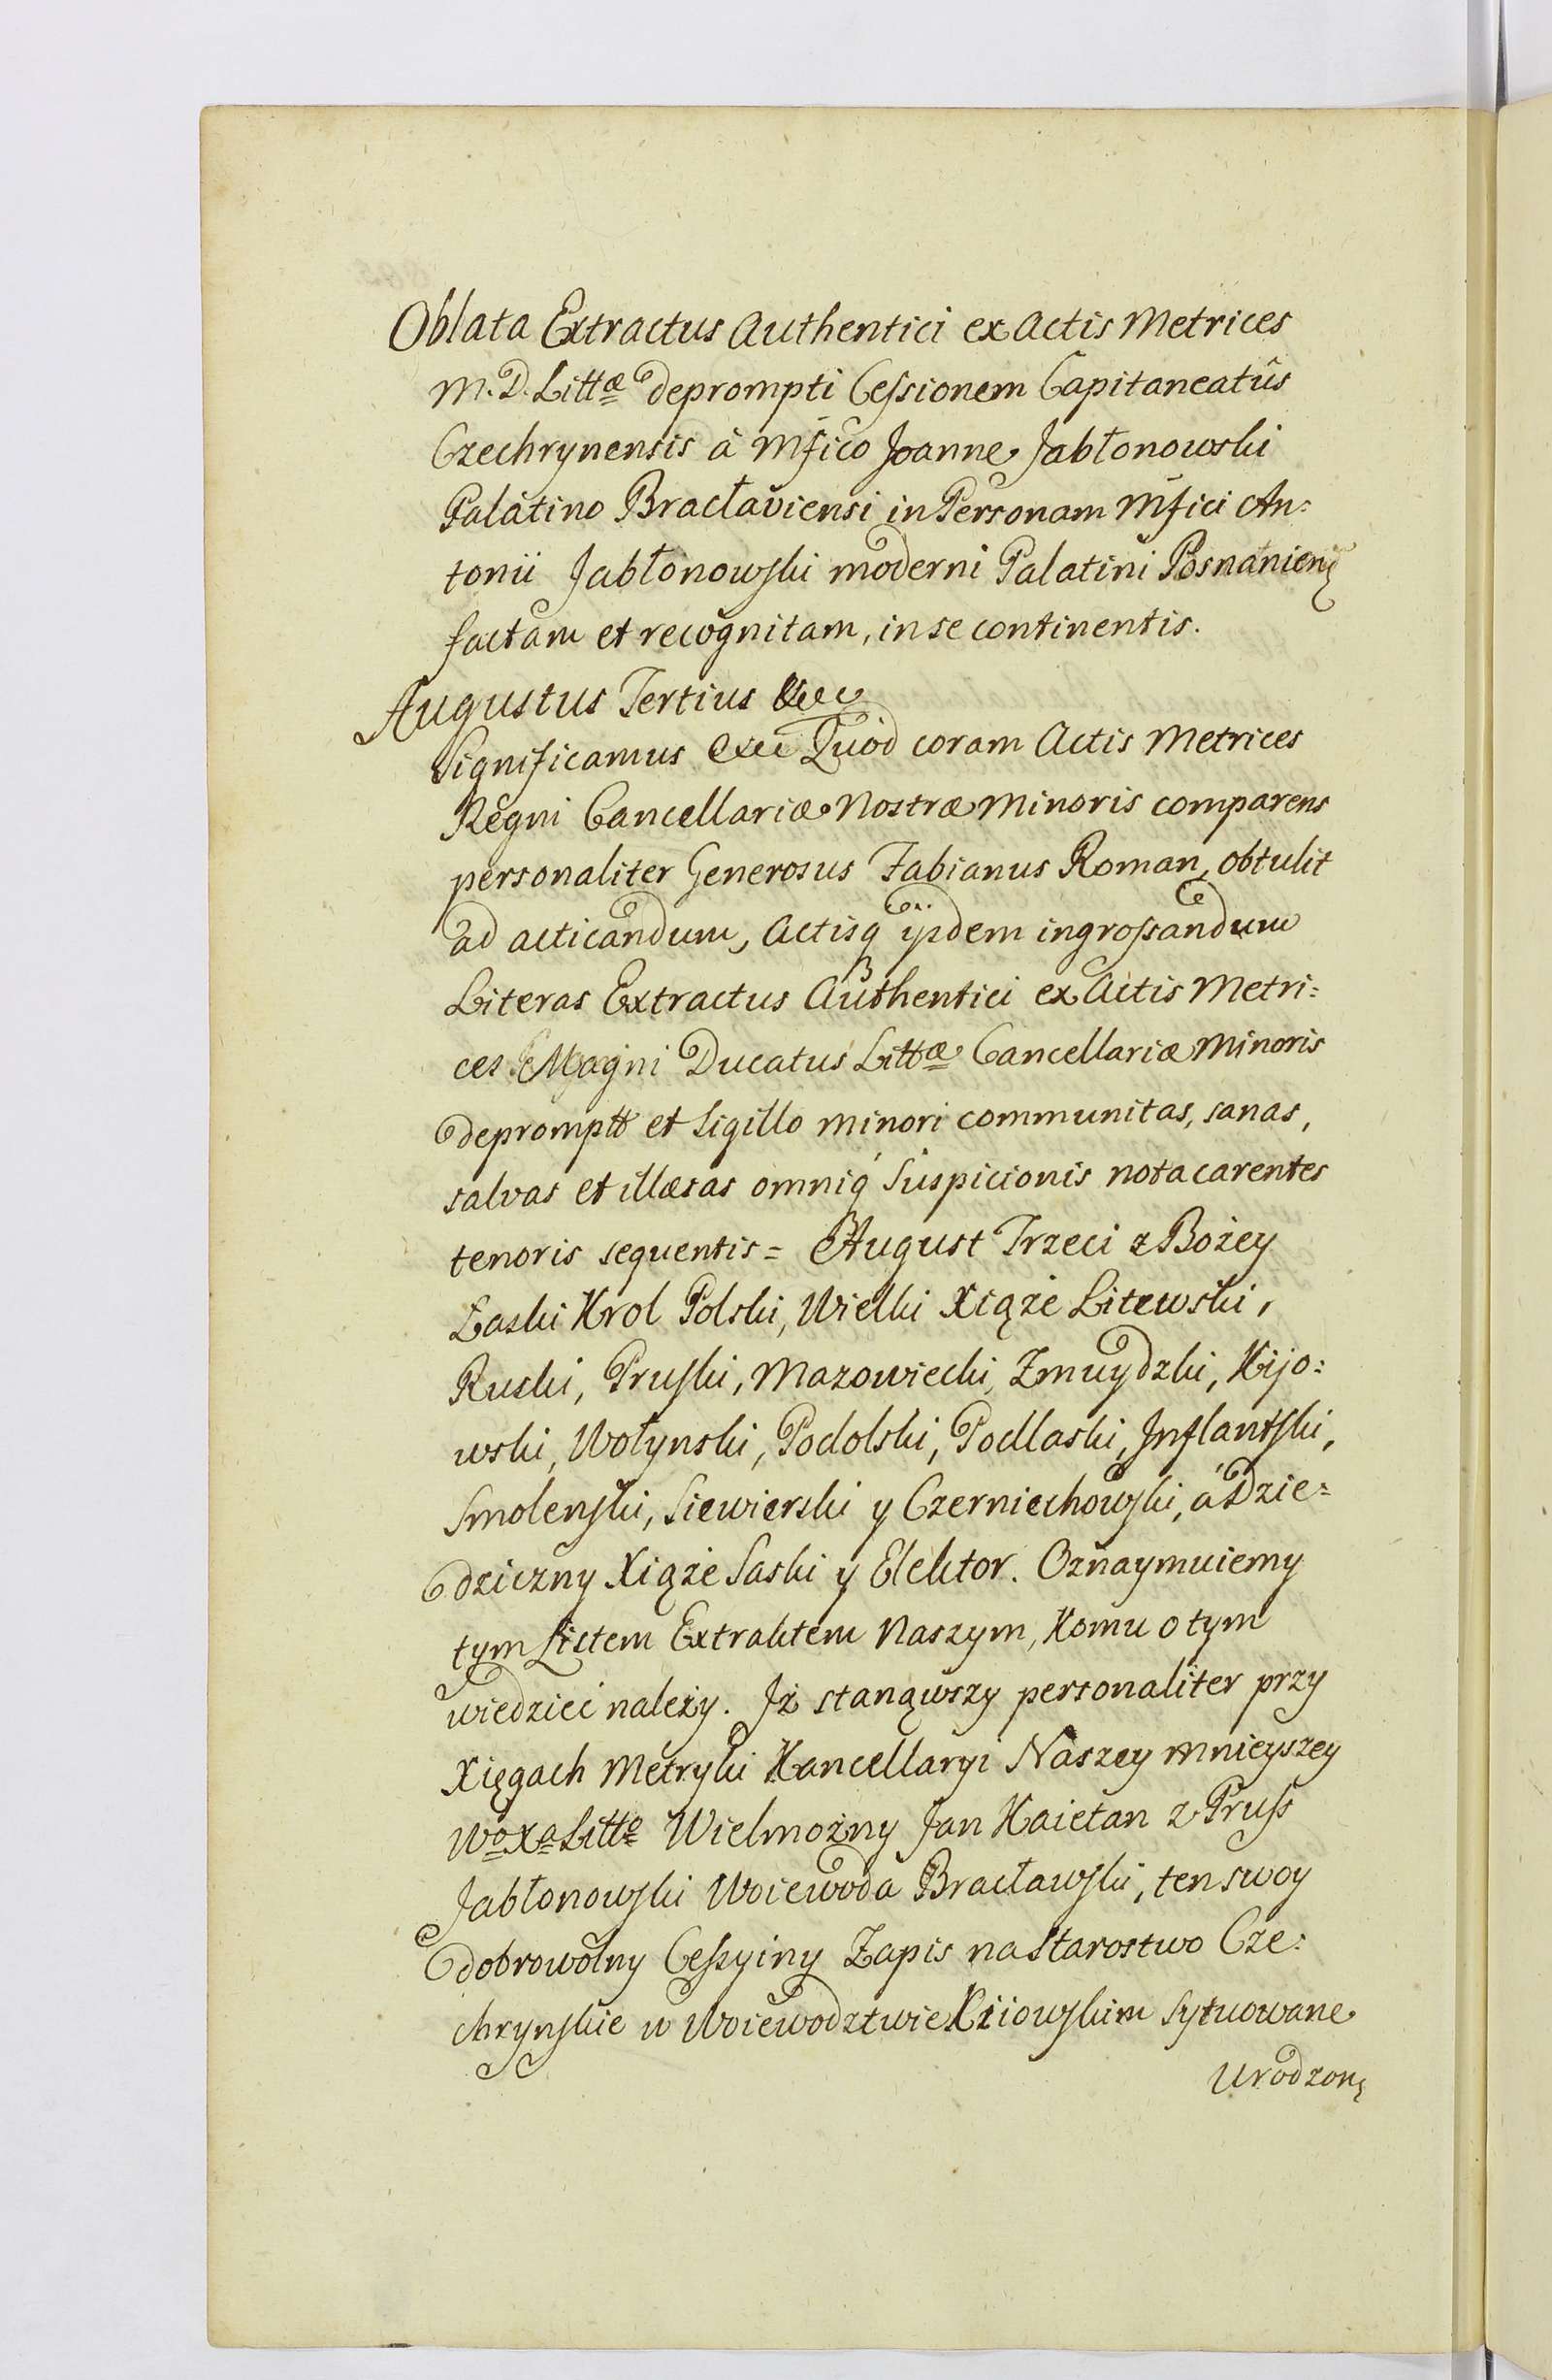 Oblata Extractus Authentici ex Actis Metrices
M. D. Littæ deprompti Cessionem Capitaneatûs
Czechrynensis à Mfico Joanne Jabłonowski
Palatino Bracłaviensi in Personam Mfici An:
tonii Jabłonowski moderni Palatini Posnanien
factam et recognitam, in se continentis.
Augustus Tertius &cc
Significamus &cc Quod coram Actis Metrices
Regni Cancellariæ Nostræ Minoris comparens
personaliter Generosus Fabianus Roman, obtulit
ad acticandum, Actisq ijsdem ingrossandum
Literas Extractus Authentici ex Actis Metri:
ces Magni Ducatus Littæ Cancellariæ Minoris
deprompt et Sigillo minori communitas, sanas,
salvas et illæsas omniq́ Suspicionis nota carentes
tenoris sequentis = August Trzeci z Bożey
Łaski Krol Polski, Wielki Xiąże Litewski,
Ruski, Pruski, Mazowiecki, Zmuydzki, Kijo:
wski, Wołynski, Podolski, Podlaski, Inflantski,
Smolenski, Siewierski y Czerniechowski, á Dzie:
dziczny Xiąże Saski y Elektor. Oznaymuiemy
tym Listem Extraktem Naszym, Komu o tym
wiedzieć należy. Iż stanąwszy personaliter przy
Xięgach Metryki Kancellaryi Naszey mnieyszey
Wo Xa Litto Wielmożny Jan Kaietan z Pruss
Jabłonowski Woiewoda Bracławski, ten swoy
dobrowolny Cessyiny Zapis na Starostwo Cze:
chrynskie w Woiewodztwie Kiiowskim sytuowane
Urodzoną